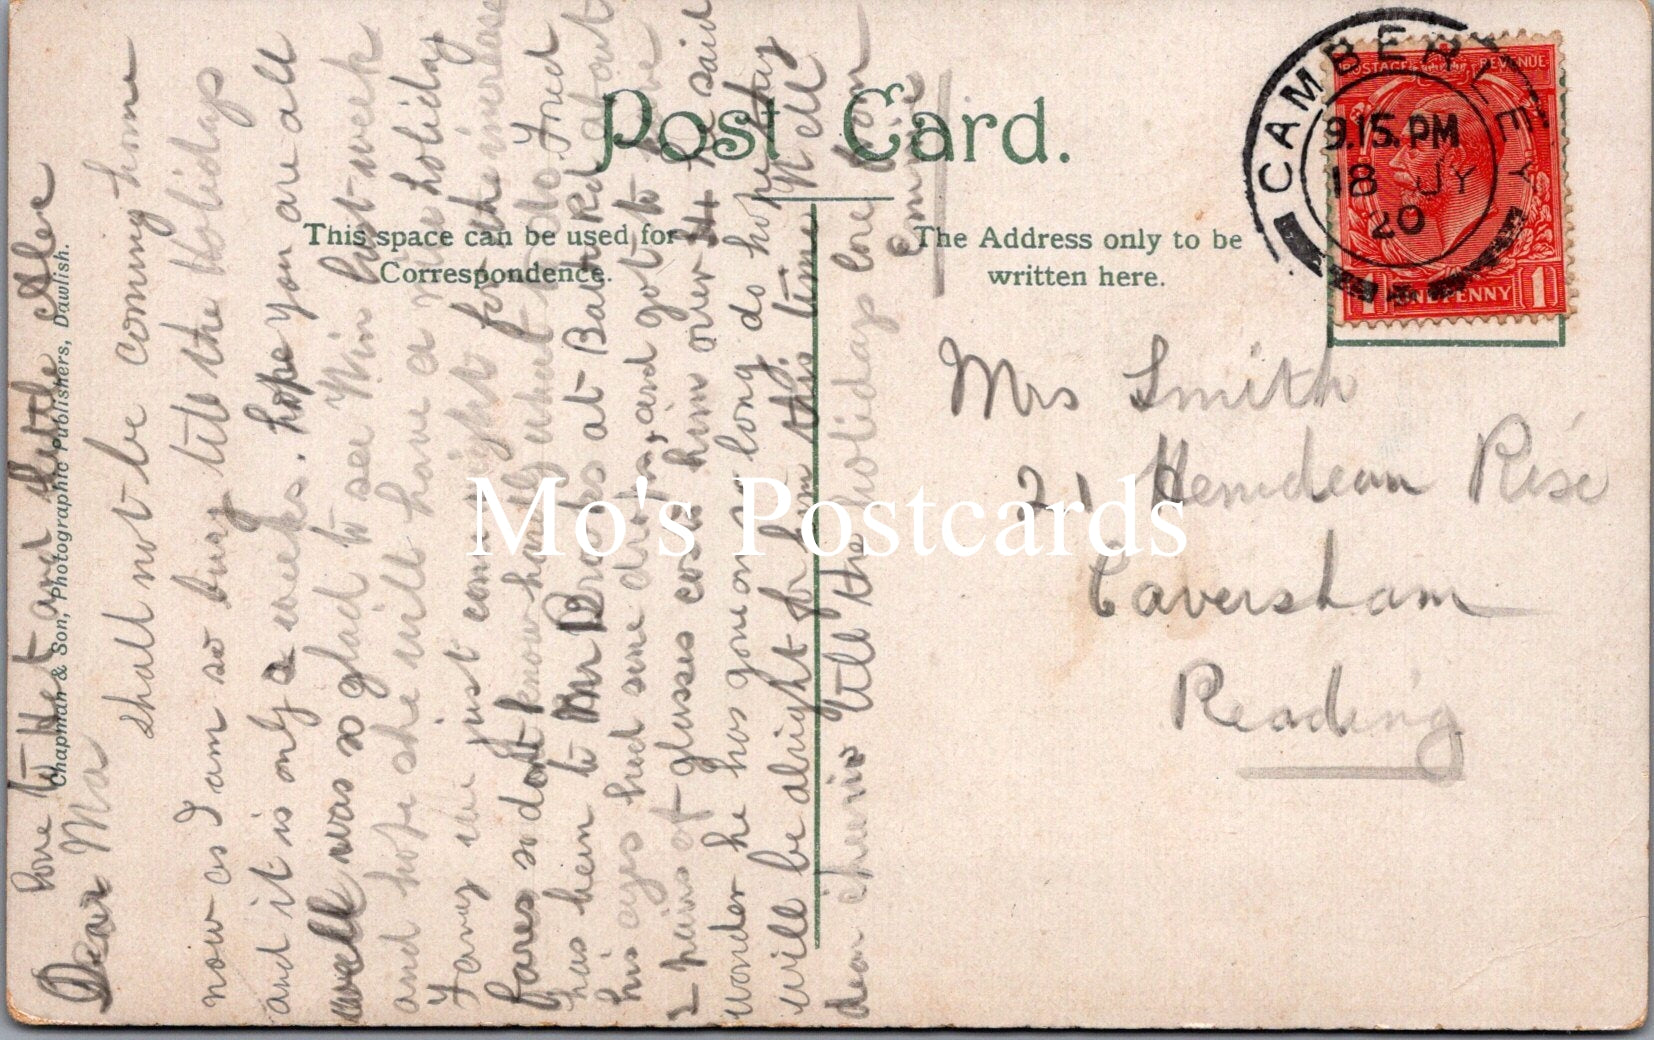 Post Card.
This space can be used for
Correspondence.
The Address only to be
written here.
Chapman & Son, Photographic Publishers, Dawlish.
CAMBERLEY
9.15.PM
18 JY
20
POSTAGE REVENUE
1 ONE PENNY 1
Mrs Smith
21 Hemdean Rise
Caversham
Reading
Mo's Postcards
love to Het and little
Dear Ma
shall not be coming home
now as I am so busy till the holidays
and it is only 2 weeks. hope you are all
well was so glad to see Win last week
and hope she will have a nice holiday
Fancy we just come right for the increase
fares so dont know hardly what to do Fred
has been to Mr Brookes at Bat Rd about
his eyes had some drops, and got to have
2 pairs of glasses cost him over £4 he said
wonder he has gone on so long do hope they
will be alright for him this time Well
dear cheerio till the holidays love from
Emmie